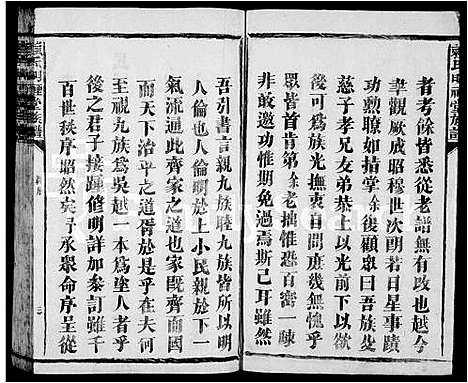 者考餘皆悉從老譜無有改也越今
聿觀厥成昭穆世次朗若日星事蹟
功勲瞭如指掌余復顧衆曰吾族父
慈子孝兄友弟恭上以光前下以裕
後可為族光撫衷自問庶幾無愧乎
眾皆首肯第余老拙惟恐百密一疎
敢邀功惟期免過焉斯已耳雖然
吾引書言親九族睦九族皆所以明
人倫也人倫明於上小民親於下一
氣流通此齊家之道也家既齊而國
治天下平之道胥於是乎在夫何
至視九族為吳越一本為塗人者乎
後之君子接踵修明詳加參訂雖千
百世挨序昭然矣予承衆命序呈從